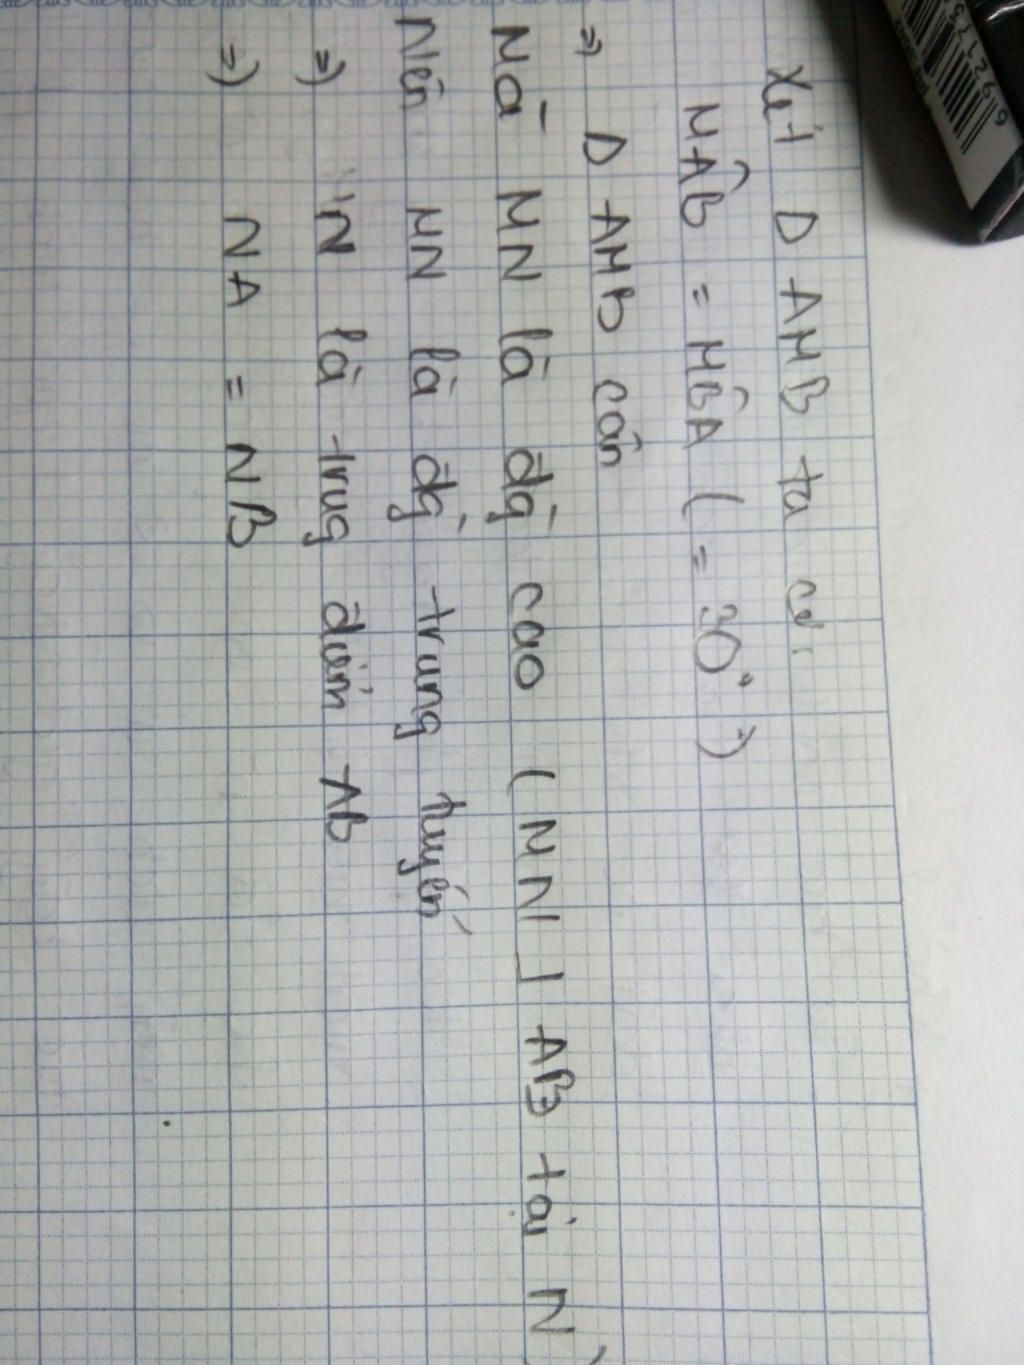 Xét D AMB ta có:
MÂB = MB̂A ( = 30° )
=> D AMB cân
Mà MN là đg̀ cao ( MN ⊥ AB tại N )
Nên MN là đg̀ trung tuyến
=> N là trug điểm AB
=> NA = NB